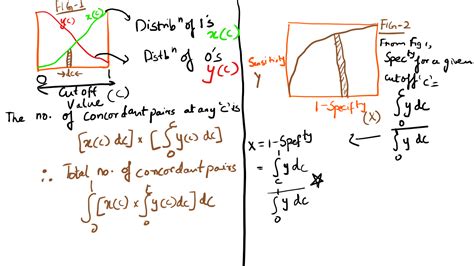 FIG-1
y(c)
x(c)
Distribⁿ of 1's
x(c)
Distbⁿ of 0's
y(c)
0
dc
1
Cut off Value (C)
The no. of concordant pairs at any 'c' is
[x(c) dc] × [∫₀ᶜ y(c) dc]
∴ Total no. of concordant pairs
∫₀¹ [x(c) × ∫₀ᶜ y(c) dc] dc
FIG-2
Sensitivity
Y
1-Specifty
(X)
From Fig 1,
Specty for a given
cutoff 'c' =
∫₀ᶜ y dc
∫₀¹ y dc
X = 1-Spefty
= ∫꜀¹ y dc
∫₀¹ y dc